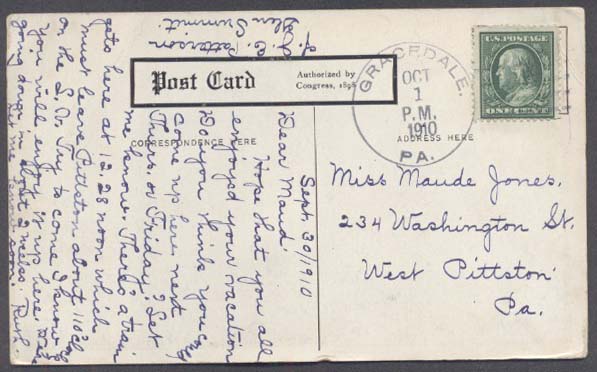 Post Card
Authorized by
Congress, 1898
CORRESPONDENCE HERE
ADDRESS HERE
GRACEDALE.
OCT
1
P.M.
1910
PA.
U.S. POSTAGE
ONE CENT
Miss Maude Jones,
234 Washington St.
West Pittston
Pa.
Sept. 30/1910
Dear Maud
Hope that you all
enjoyed your vacation
Do you think you can
come up here next
Thurs. or Friday? Let
me know. There's a train
gets here at 12.28 noon which
must leave Pittston about 11 o'clock
on the L.V. Try to come I know
you will enjoy it up here.
going down in about 2 weeks.
Let me know soon. Ruth.
C. Patterson
Glen Summit